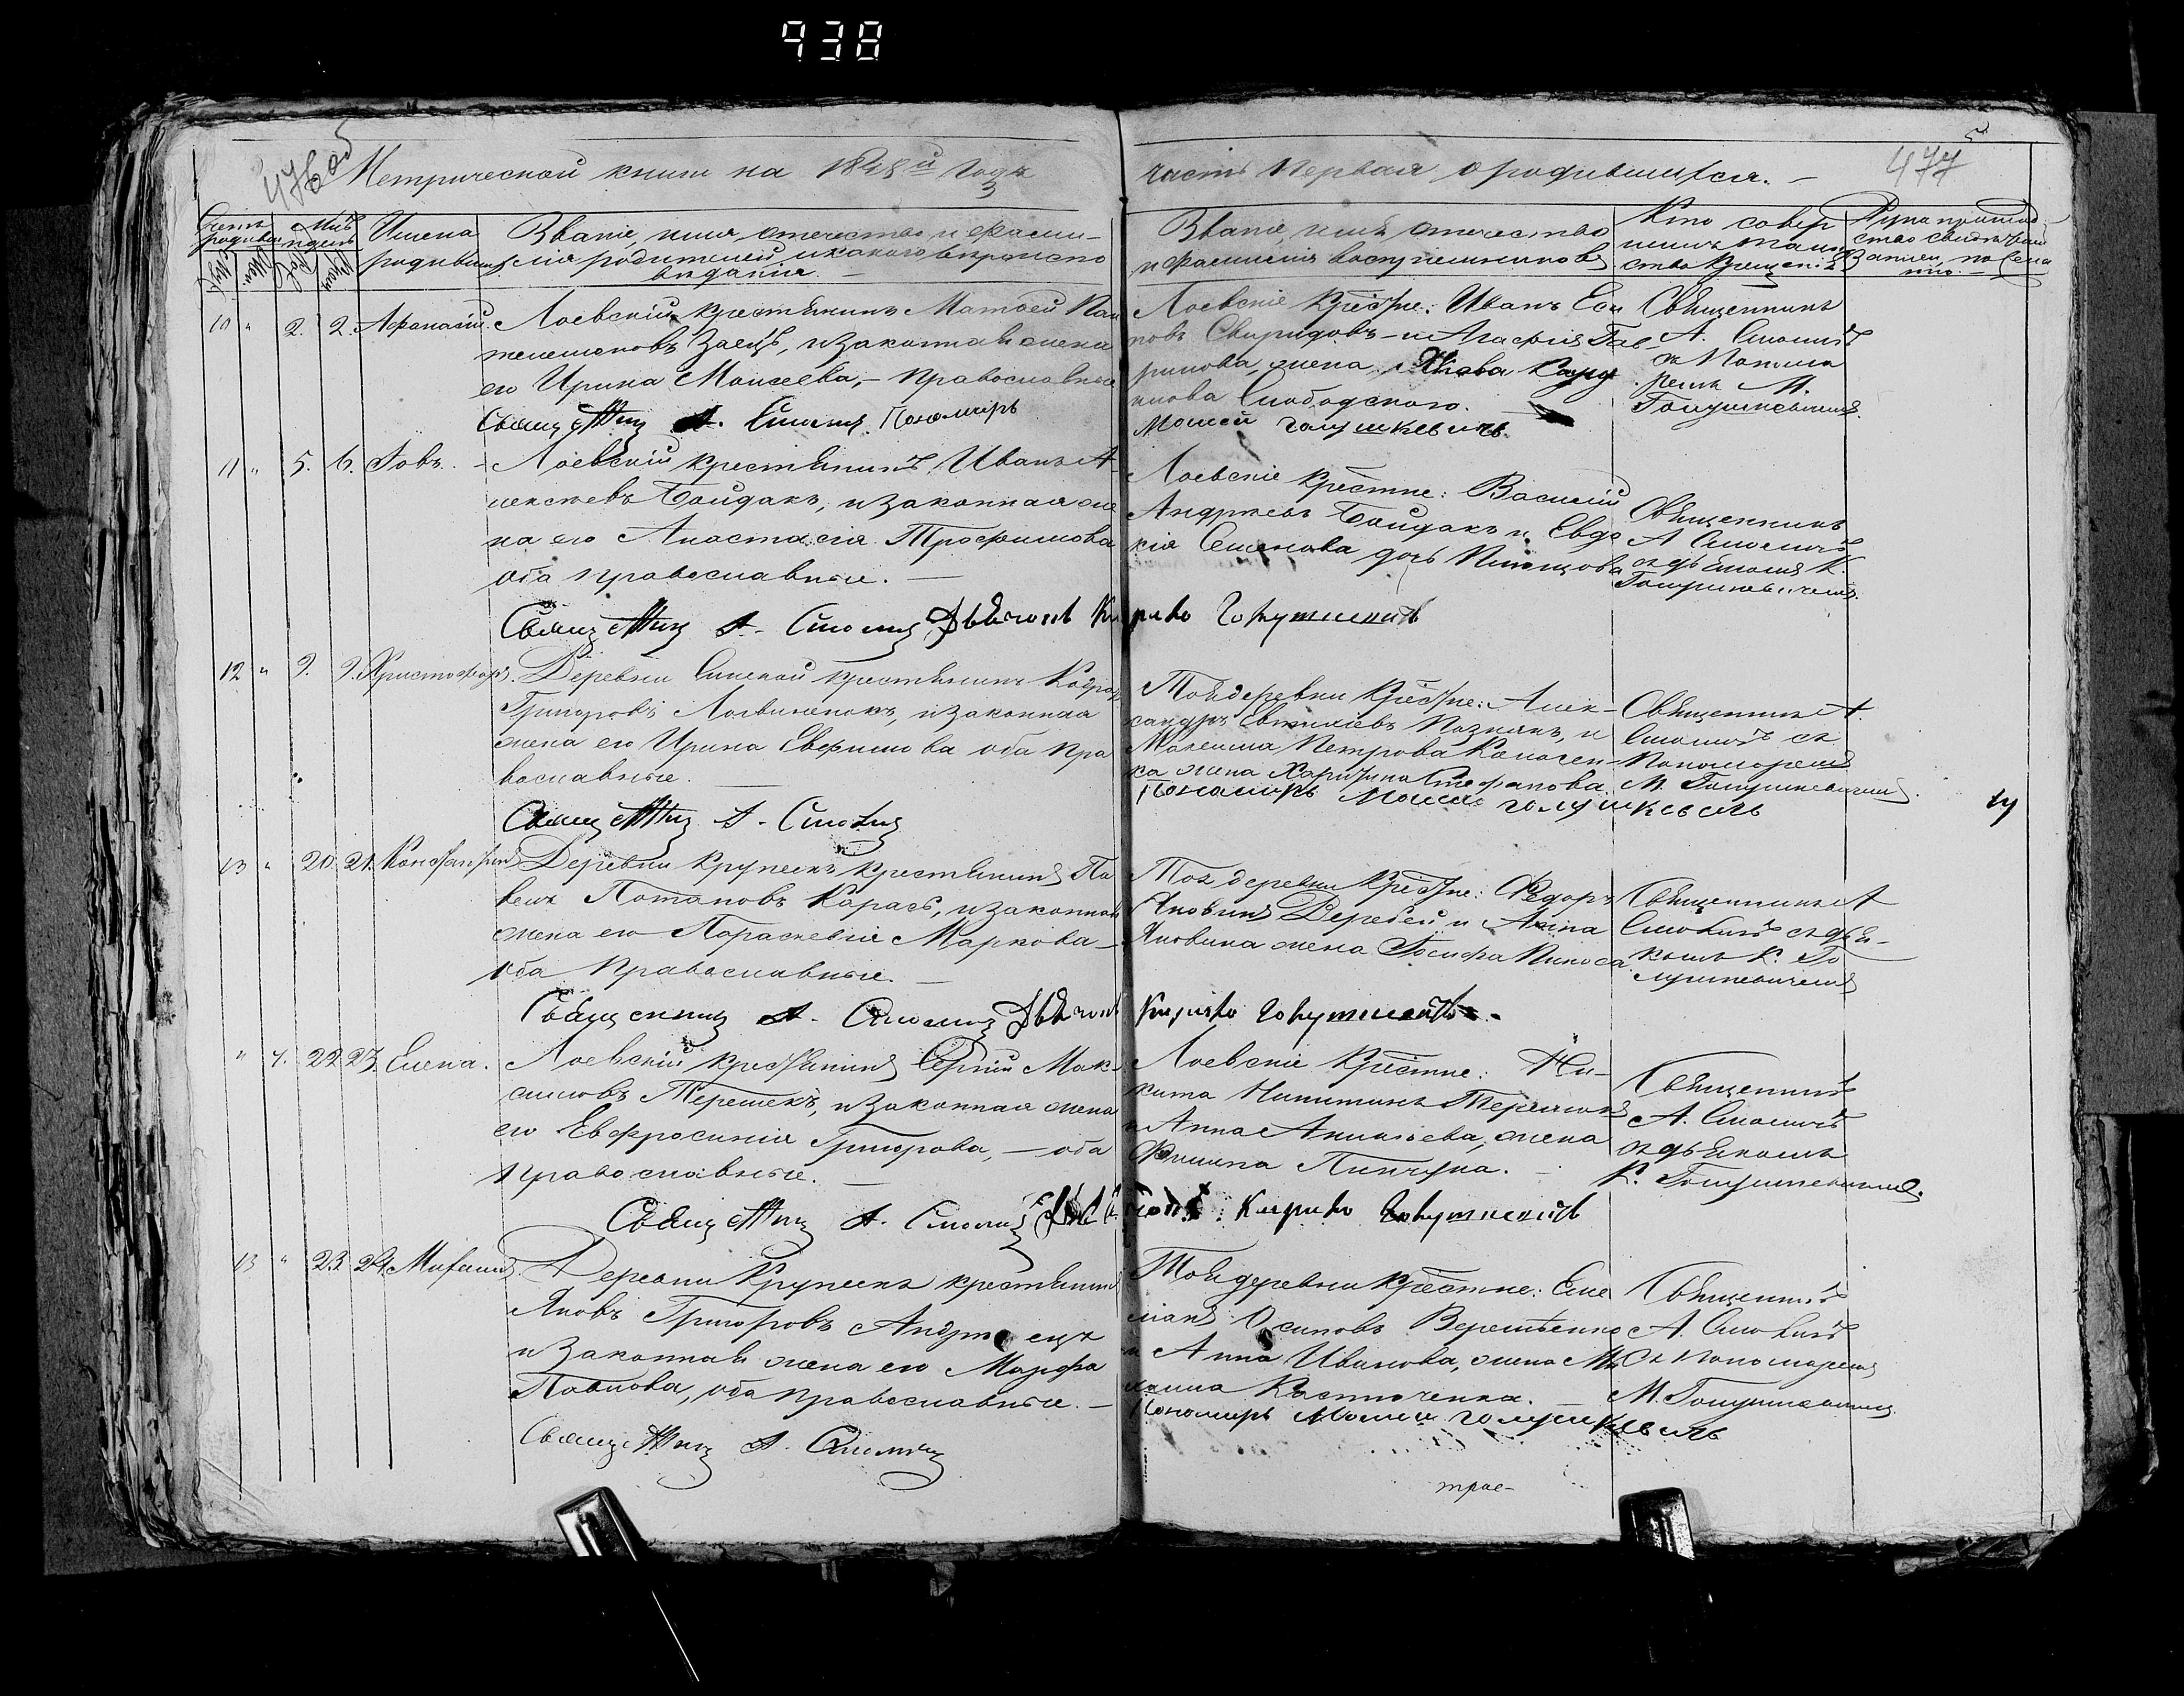 938
476 об
Метрической книги на 1848й Года
часть первая о родившихся.
477
5
Счетъ родивш Мць и день
Имена родившихся
Званіе, имя, отечество и фами-
лія родителей и какого вѣроиспо
вѣданія.
Званіе, имя отечество
и фамилія воспріемниковъ
Кто совер
шилъ таин
ство Крещенія
Рукоприклад
ство свидѣтелей
записи по жела
нію
10 " 2. 2. Афанасій.
Лоевскій крестьянинъ Матѳей Пан
телемоновъ Заецъ, и законная жена
его Ирина Моисеева, - православные
Священникъ А. Смоличъ Пономарь
Лоевскіе Крестне: Иванъ Еси
повъ Свиридовъ - и Агафія Гав
рилова, жена Якова
Слободского.
Моисей Голушкевичь
Священникъ
А. Смоличъ
съ Понома
ремъ М.
Голушкевичемъ.
11 " 5. 6. Іовъ.
Лоевскій крестьянинъ Иванъ А
лексѣевъ Байдакъ, и законная же
на его Анастасія Трофимова
оба православные.
Священникъ А. Смоличъ Дьячокъ Кирило Голушкевичъ
Лоевскіе Крестне: Василій
Андреевъ Байдакъ и Евдо
кія Семенова дочь
Священникъ
А Смоличъ
съ дьякомъ К.
Голушкевичемъ.
12 " 9. 9. Христофоръ.
Деревни крестьянинъ
Григоровъ Логвиненокъ, и законная
жена его Ирина Евфимова оба пра
вославные.
Священникъ А. Смоличъ
Той деревни Крестне: Алек-
сандръ Евтихіевъ Познякъ, и
Петрова
жена Харитона Стефанова.
Пономарь Моисей Голушкевичь
Священникъ А.
Смоличъ съ
Пономаремъ
М. Голушкевичемъ.
13 " 20. 21. Константинъ
Деревни Крупекъ крестьянинъ Па
велъ Потаповъ Карась, и законная
жена его Параскевія Маркова -
оба православные.
Священникъ А. Смоличъ Дьячокъ Кирило Голушкевичъ.
Той деревни Крестне: Федоръ
Яковинъ Деребей и Анна
Яковина жена Іосифа
Священникъ А
Смоличъ съ дья-
комъ К. Го
лушкевичемъ
" 7. 22 23 Елена.
Лоевскій крестьянинъ Сергій Мак-
симовъ Терешекъ, и законная жена
его Евфросинія Григорова, - оба
православные.
Священникъ А. Смоличъ Дьячокъ: Кирило Голушкевичъ
Лоевскіе Крестне: Ни-
кита Никитинъ Терешокъ
и Анна жена
Филипа Пинчука.
Священникъ
А. Смоличъ
съ дьякомъ
К. Голушкевичемъ.
13 " 23. 24. Михаилъ.
Деревни Крупекъ крестьянинъ
Яковъ Григоровъ
и законная жена его Марфа
Павлова, оба православные. -
Священникъ А. Смоличъ
Той деревни Крестне: Еме
ліанъ Осиповъ
и Анна Иванова, жена Ми
хаила Касточенка.
Пономарь Моисей Голушкевичь
Священникъ
А. Смоличъ
Съ Пономаремъ
М. Голушкевичемъ
трое-